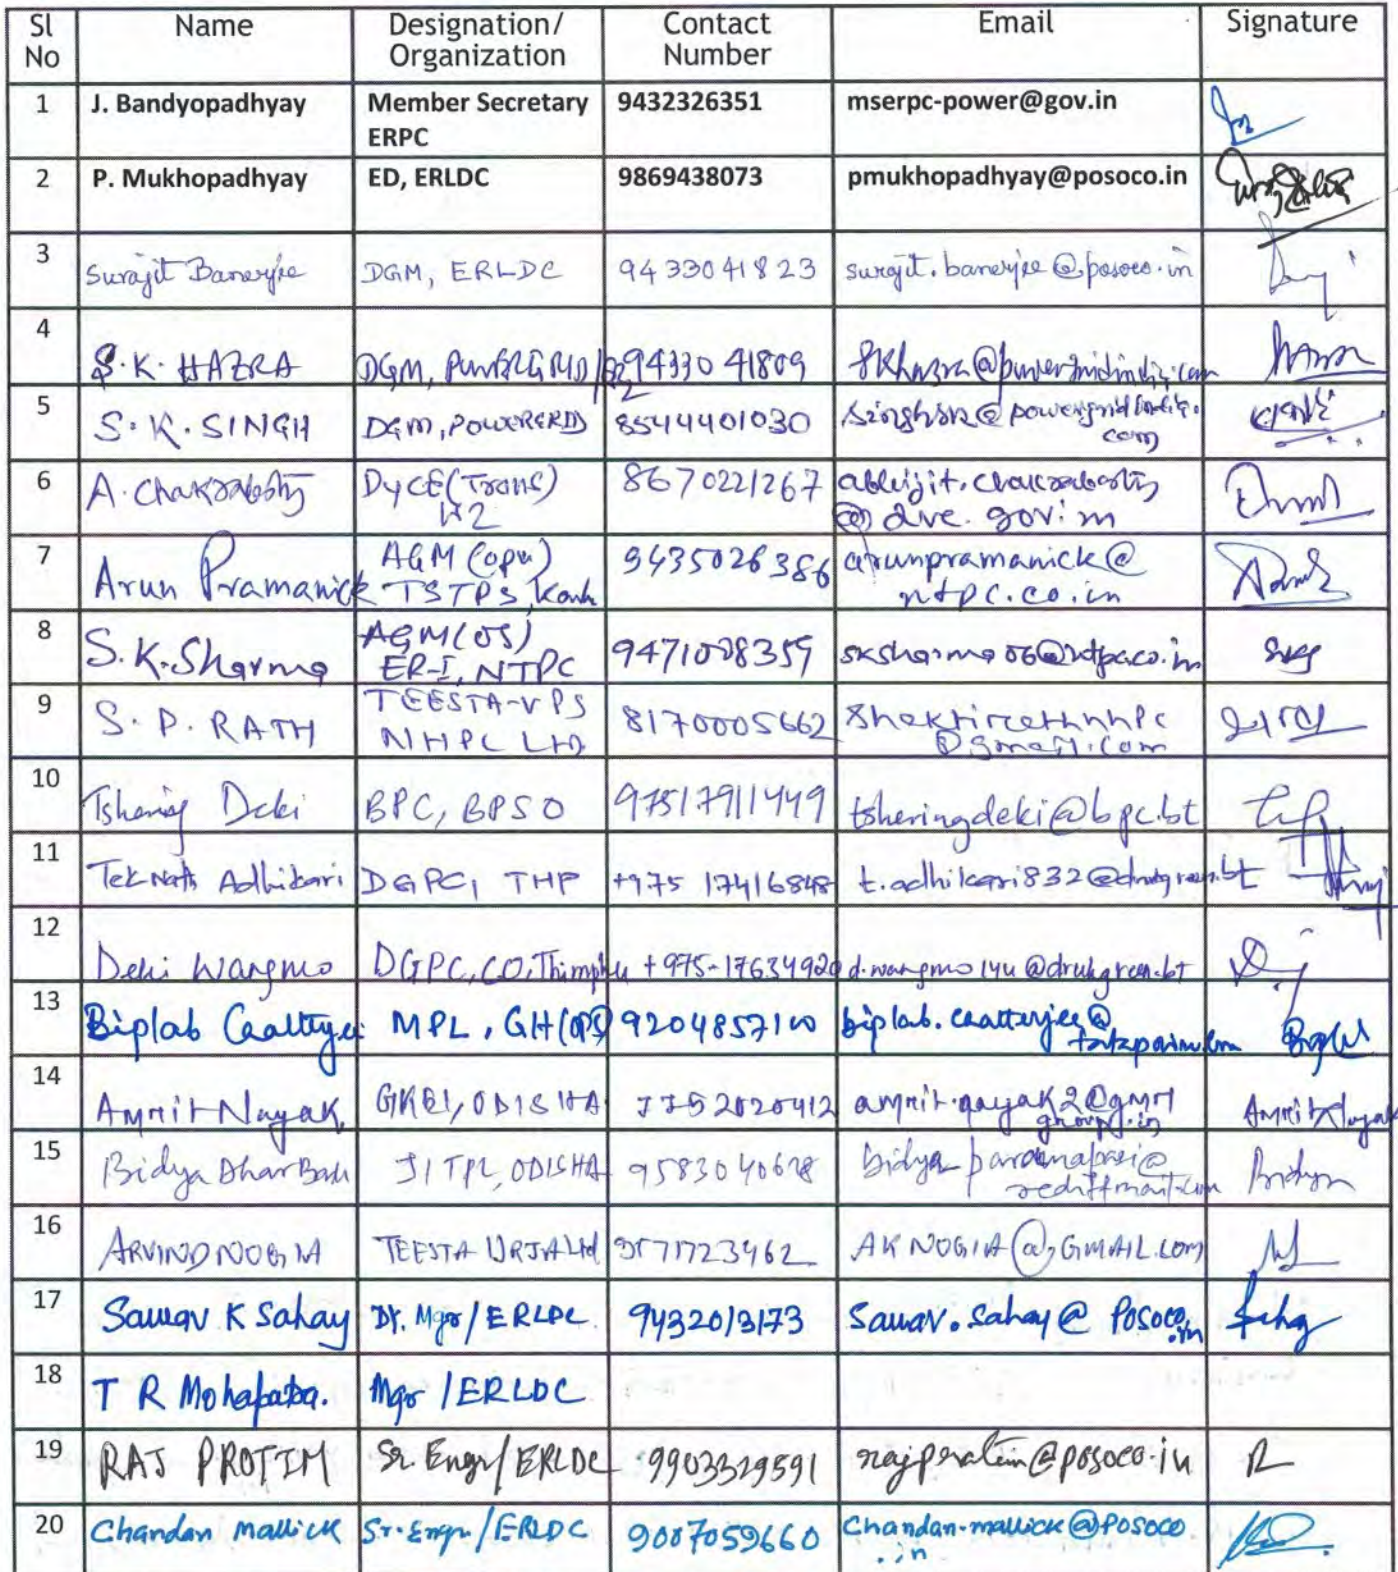 Sl No Name Designation/ Organization Contact Number Email Signature
1 J. Bandyopadhyay Member Secretary ERPC 9432326351 mserpc-power@gov.in
2 P. Mukhopadhyay ED, ERLDC 9869438073 pmukhopadhyay@posoco.in
3 Surajit Banerjee DGM, ERLDC 9433041823 surajit.banerjee@posoco.in
4 S.K. HAZRA DGM, POWERGRID 94330 41809 skhazra@powergridindia.com
5 S.K. SINGH DGM, POWERGRID 8544401030 singhsk@powergridindia.com
6 A. Chakraborty DyCE(Trans) 8670221267 abhijit.chakraborty@dvc.gov.in
7 Arun Pramanick AGM (opn) TSTPS, 9435026386 arunpramanick@ntpc.co.in
8 S.K. Sharma AGM(OS) ER-I, NTPC 9471008359 sksharma06@ntpc.co.in
9 S. P. RATH TEESTA-V PS NHPC LTD 8170005662 @gmail.com
10 Tshering Deki BPC, BPSO 97517911449 tsheringdeki@bpc.bt
11 Teknath Adhikari DGPC, THP +975 17416848 t.adhikari832@drukgreen.bt
12 Deki Wangmo DGPC, CO, Thimphu +975-17634920 d.wangmo144@drukgreen.bt
13 Biplab Chatterjee MPL, GH(OPS) 9204857100 biplab.chatterjee@tatapower.com
14 Amrit Nayak GKEL, ODISHA 7752020412 amrit.nayak2@gmrgroup.in
15 Bidya Dhar JITPL, ODISHA 9583040628
16 ARVIND NOGIA TEESTA URJA Ltd 9571723462 AKNOGIA@GMAIL.COM
17 Saurav K Sahay Dy. Mgr/ERLDC 9432013173 Saurav.Sahay@Posoco.in
18 T R Mohapatra. Mgr /ERLDC
19 RAJ PROTIM Sr. Engr/ERLDC 9903329591 rajprotim@posoco.in
20 Chandan mallick Sr. Engr./ERLDC 9007059660 Chandan.mallick@posoco.in